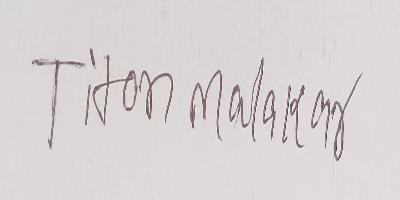 Titon malakar